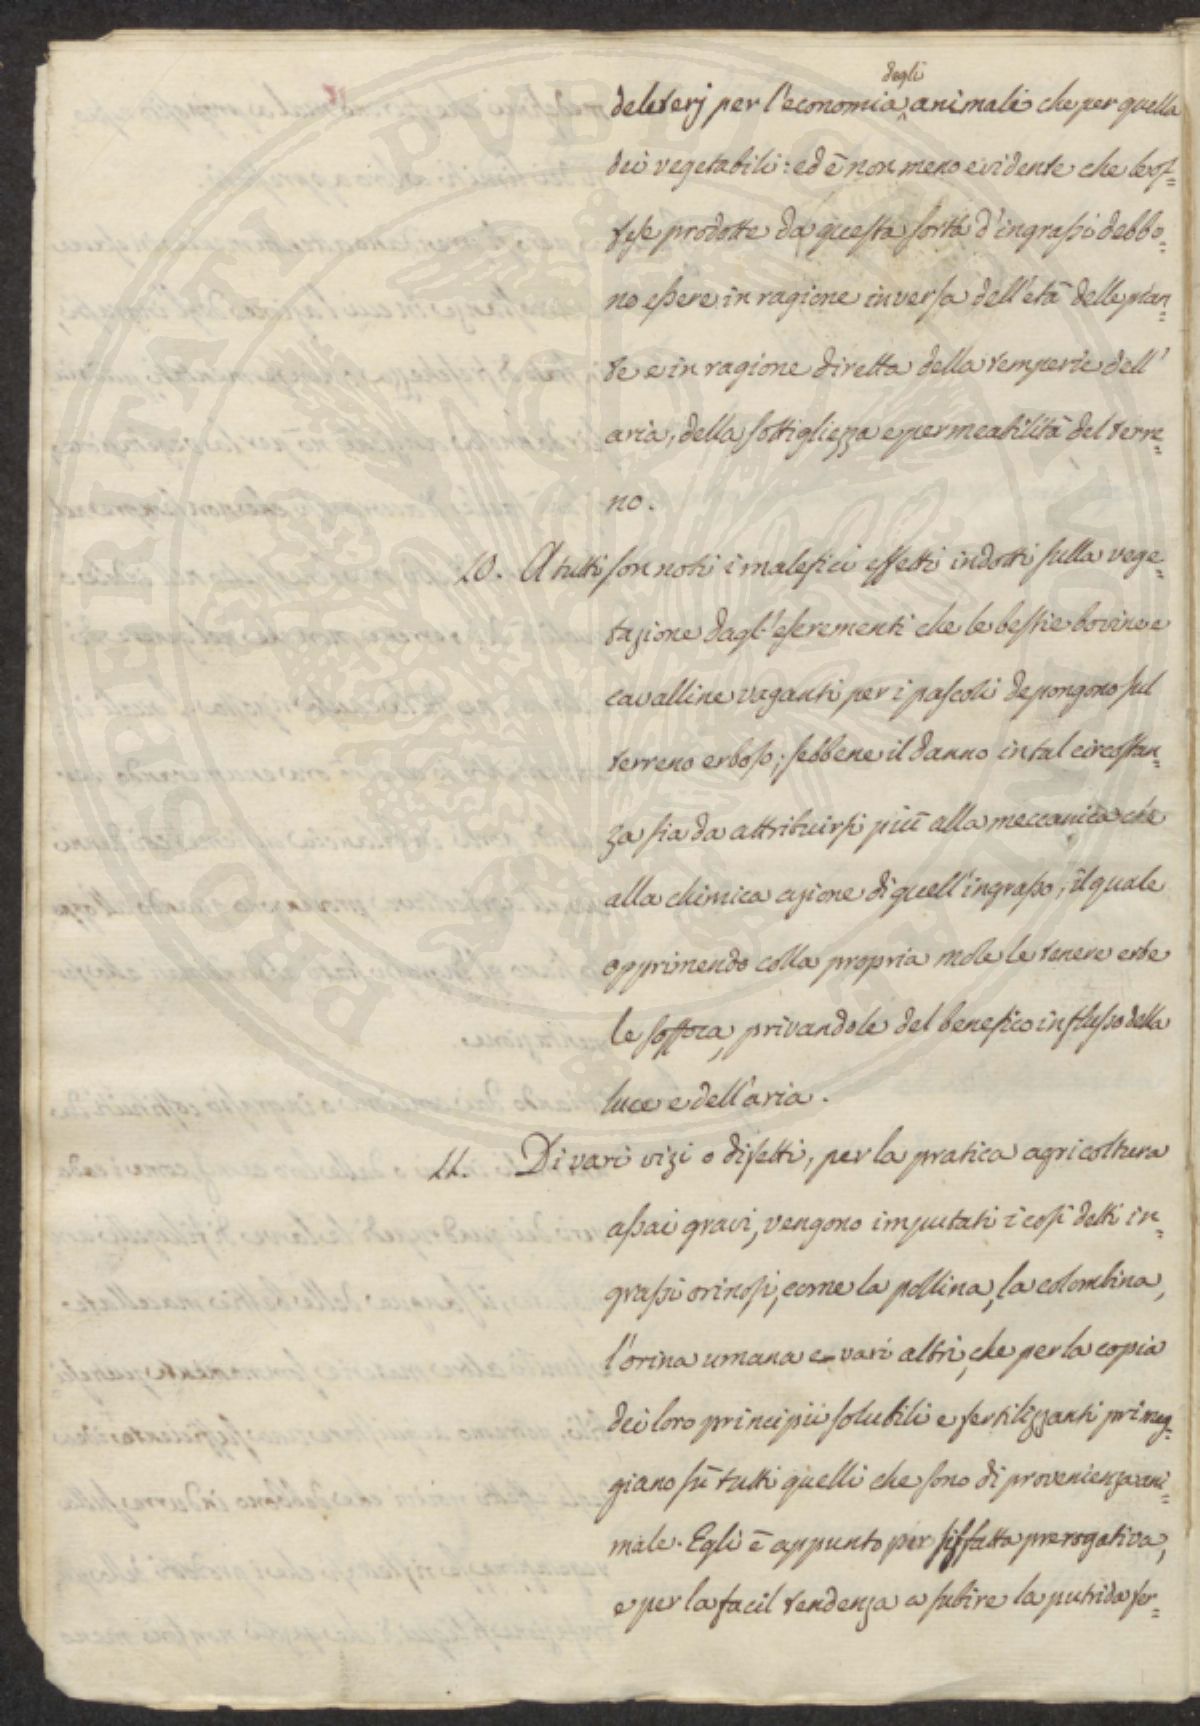 deleterj per l'economia degli animali che per quella
dei vegetabili: ed è non meno evidente che le of=
fese prodotte da questa sorta d'ingrassi debbo=
no essere in ragione inversa dell'età delle pian=
te e in ragione diretta della temperie dell'
aria, della sottigliezza e permeabilità del terre=
no.
10. A tutti son noti i malefici effetti indotti sulla vege=
tazione dagl'escrementi che le bestie bovine e
cavalline vaganti per i pascoli depongono sul
terreno erboso; sebbene il danno in tal circostan=
za sia da attribuirsi più alla meccanica che
alla chimica azione di quell'ingrasso, il quale
opprimendo colla propria mole le tenere erbe
le soffoca, privandole del benefico influsso della
luce e dell'aria.
11. Di vari vizi o difetti, per la pratica agricoltura
assai gravi, vengono imputati i così detti in=
grassi orinosi, come la pollina, la colombina,
l'orina umana e vari altri, che per la copia
dei loro principii solubili e fertilizzanti primeg=
giano sù tutti quelli che sono di provenienza ani=
male. Egli è appunto per siffatta prerogativa,
e per la facil tendenza a subire la putrida fer=
PROSPERITATI PUBLICAE